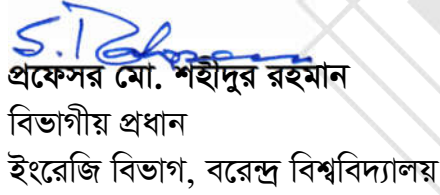 S. Rahman
প্রফেসর মো. শহীদুর রহমান
বিভাগীয় প্রধান
ইংরেজি বিভাগ, বরেন্দ্র বিশ্ববিদ্যালয়